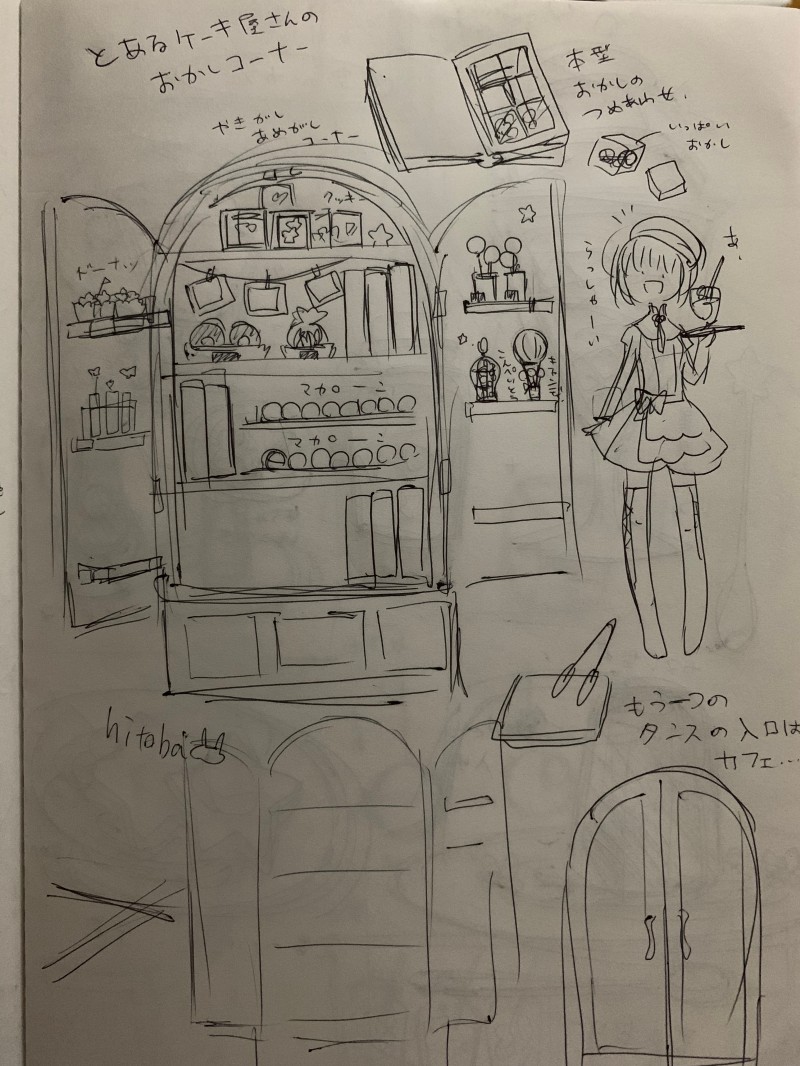 とあるケーキ屋さんの
おかしコーナー
本型
おかしの
つめあわせ.
やきがし
あめがし
コーナー
いっぱい
おかし
クッキー
ドーナツ
らっしゃーい
あ、
マカローン
マカローン
こんぺいとう
もう一つの
タンスの入口は
カフェ…
hitoba